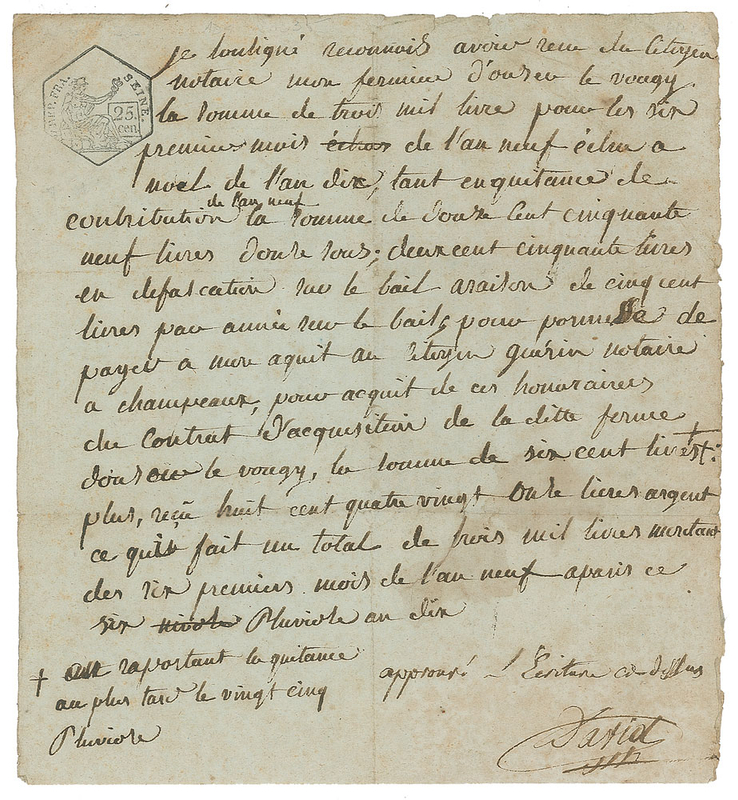 SEINE.
REP. FRA.
25
cen.
je soussigné reconnois avoir reçu du Citoyen
notaire mon fermier d'ouseu le vougy.
la somme de trois mil livre pour les six
premiers mois échus de l'an neuf échu a
noel de l'an dix, tant en quitance de
de l'an neuf
contribution la somme de douze cent cinquante
neuf livres douze sous; deux cent cinquante livres
en defalcation sur le bail araison de cinq cent
livres par année sur le bail, pour de
payer a mon aquit au Citoyen guérin notaire
a champeaux, pour acquit de ces honoraires
du Contrat d'acquisition de la ditte ferme
le vougy, la somme de six cent livres +.
plus, reçu huit cent quatre vingt onze livres argent
ce qui fait un total de trois mil livres montant
des six premiers mois de l'an neuf aparis ce
six nivose Pluviose an dix
+ en raportant la quitance
au plus tard le vingt cinq
Pluviose
approuvé l'Ecriture ci dessus
David